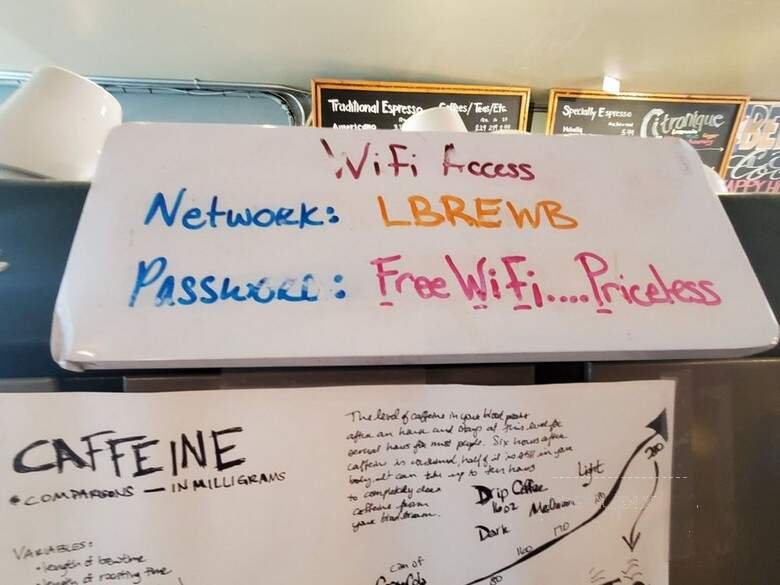 Traditional Espresso
Coffees/Teas/Etc.
Americano
Specialty Espresso
Citronique
WiFi Access
Network: LBREWB
Password: FreeWiFi....Priceless
CAFFEINE
• COMPARISONS — IN MILLIGRAMS
VARIABLES:
• length of brewtime
• length of roasting time
The level of caffeine in your blood peaks
after an hour and stays at this level for
several hours for most people. Six hours after
caffeine is consumed, half of it is still in your
body. It can take up to ten hours
to completely clear
caffeine from
your bloodstream.
Light
Drip Coffee
16oz
Medium
Dark
200
170
160
can of